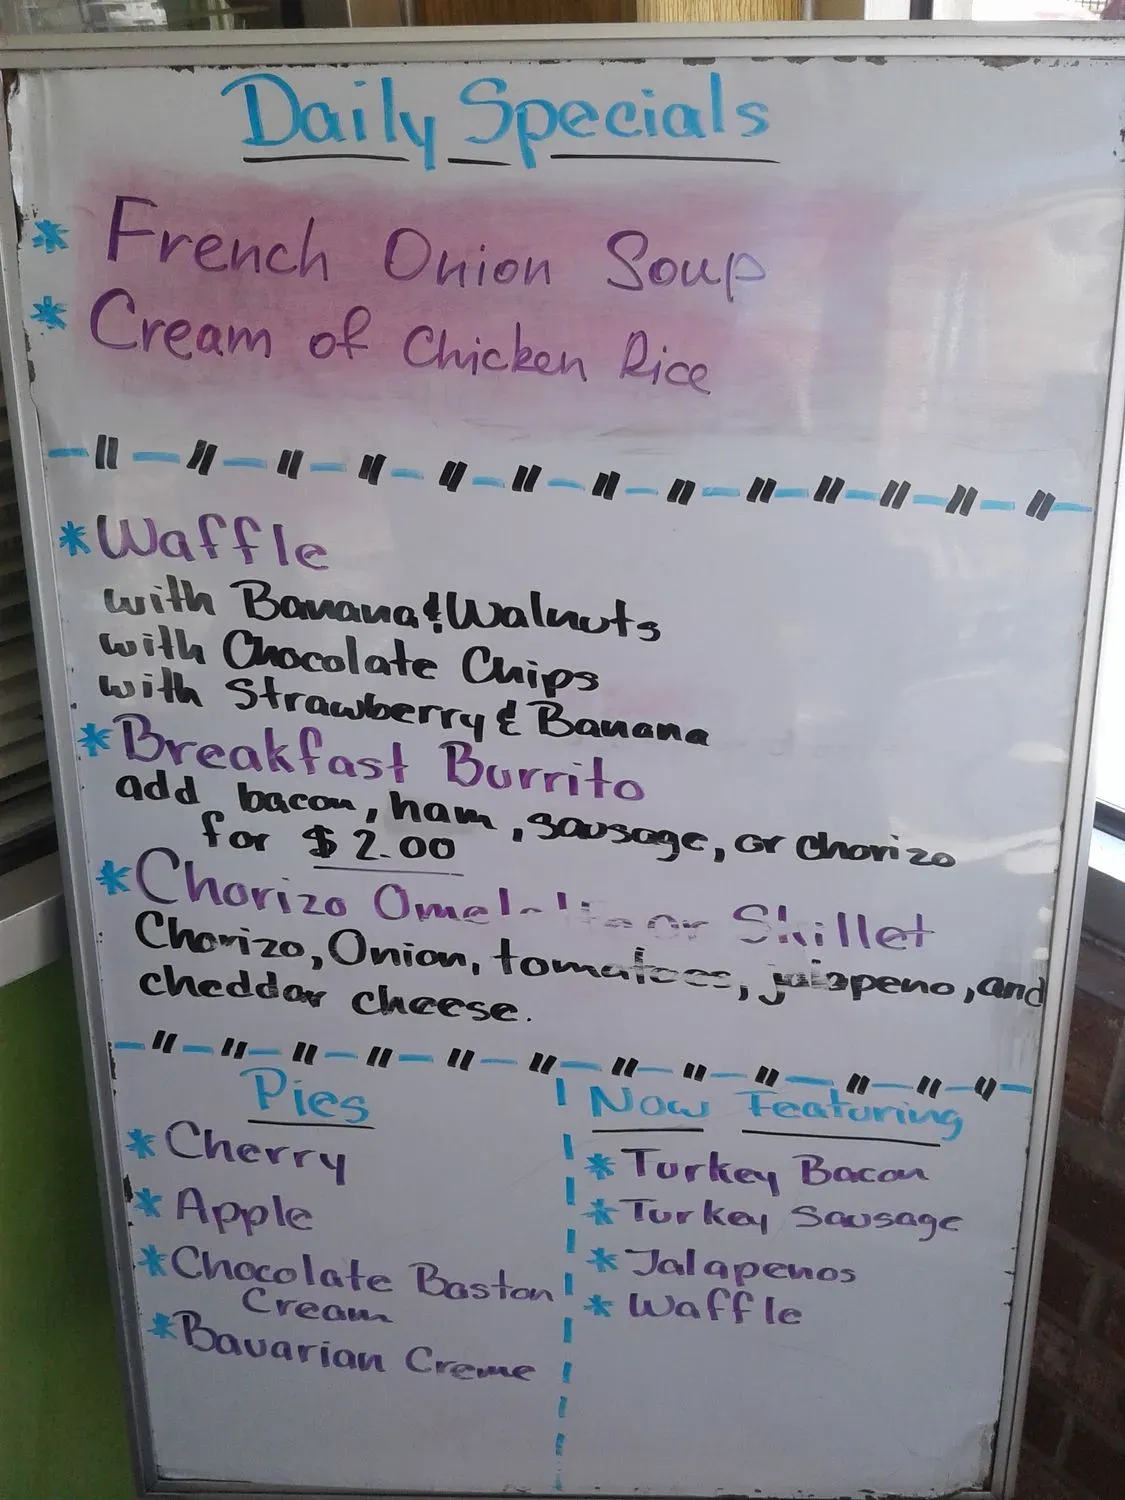 Daily Specials
* French Onion Soup
* Cream of Chicken Rice
* Waffle
with Banana & Walnuts
with Chocolate Chips
with Strawberry & Banana
* Breakfast Burrito
add bacon, ham, sausage, or chorizo
for $2.00
* Chorizo Omelette or Skillet
Chorizo, Onion, tomatoes, jalapeno, and
cheddar cheese.
Pies
* Cherry
* Apple
* Chocolate Baston
Cream
* Bavarian Creme
Now Featuring
* Turkey Bacon
* Turkey Sausage
* Jalapenos
* Waffle